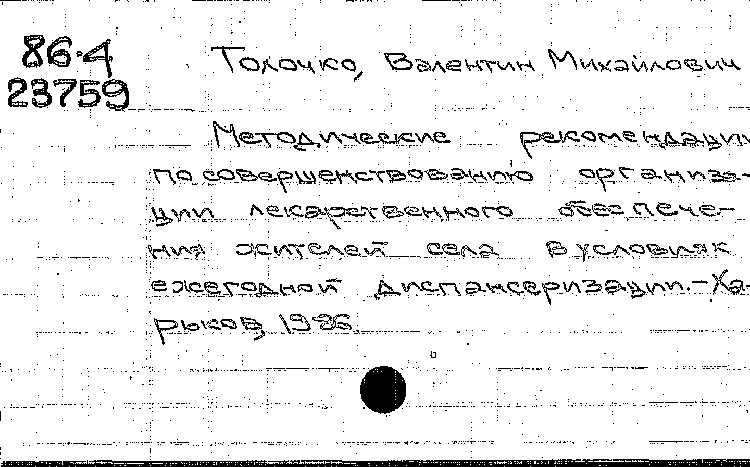 86-4
23759
Толочко, Валентин Михайлович
Методические рекомендации
по совершенствованию организа-
ции лекарственного обеспече-
ния жителей села в условиях
ежегодной диспансеризации.-Ха-
рьков, 1986.